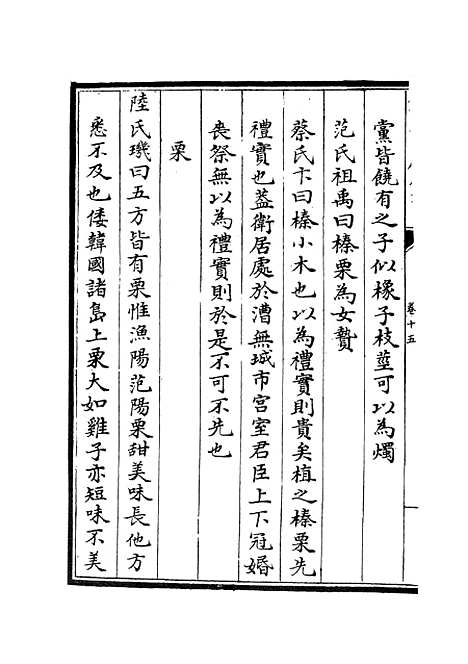 黨皆饒有之子似橡子枝莖可以為燭
范氏祖禹曰榛栗為女贄
蔡氏卞曰榛小木也以為禮實則貴矣植之榛栗先
禮實也蓋衛居處於漕無城市宮室君臣上下冠婚
喪祭無以為禮實則於是不可不先也
栗
陸氏璣曰五方皆有栗惟漁陽范陽栗甜美味長他方
悉不及也倭韓國諸島上栗大如雞子亦短味不美
卷十五